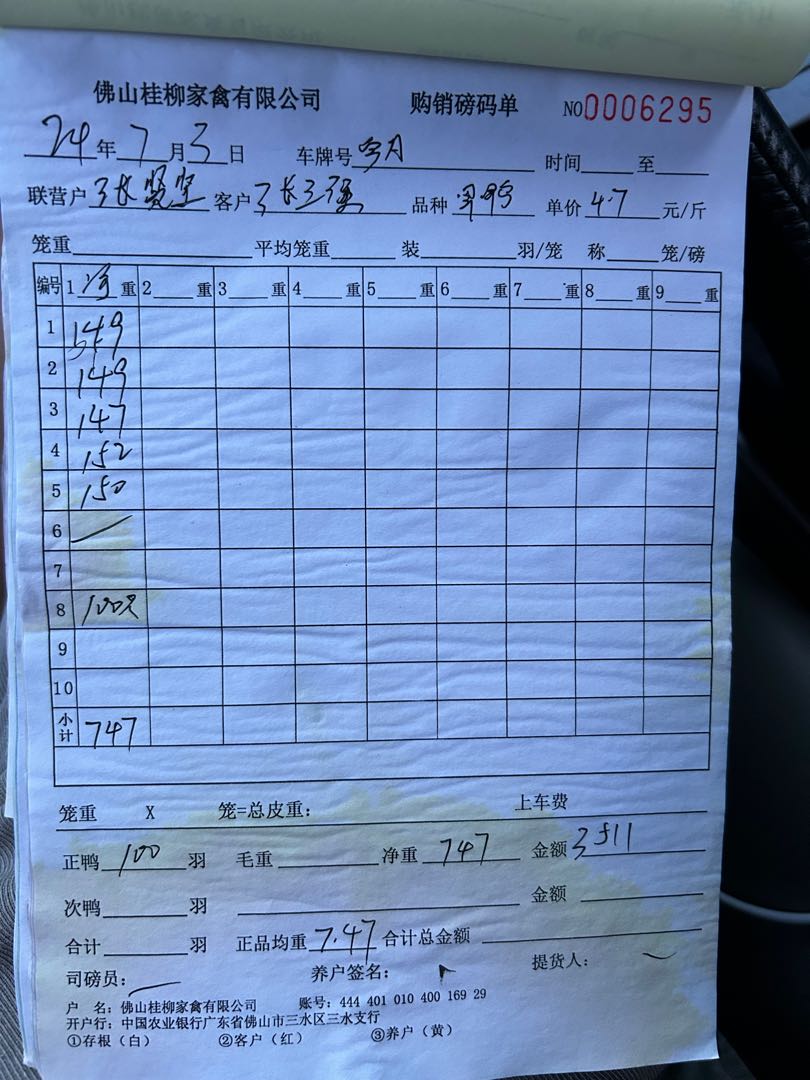 佛山桂柳家禽有限公司 购销磅码单 NO0006295
24年7月3日 车牌号 时间 至
联营户 张贤宝 客户 张三强 品种 单价 4.7 元/斤
笼重 平均笼重 装 羽/笼 称 笼/磅
编号 1 净 重 2 重 3 重 4 重 5 重 6 重 7 重 8 重 9 重
1 149
2 149
3 147
4 152
5 150
6
7
8 100只
9
10
小计 747
笼重 X 笼=总皮重: 上车费
正鸭 100 羽 毛重 净重 747 金额 3511
次鸭 羽 金额
合计 羽 正品均重 7.47 合计总金额
司磅员: 养户签名: 提货人:
户 名: 佛山桂柳家禽有限公司 账号: 444 401 010 400 169 29
开户行: 中国农业银行广东省佛山市三水区三水支行
①存根(白) ②客户(红) ③养户(黄)